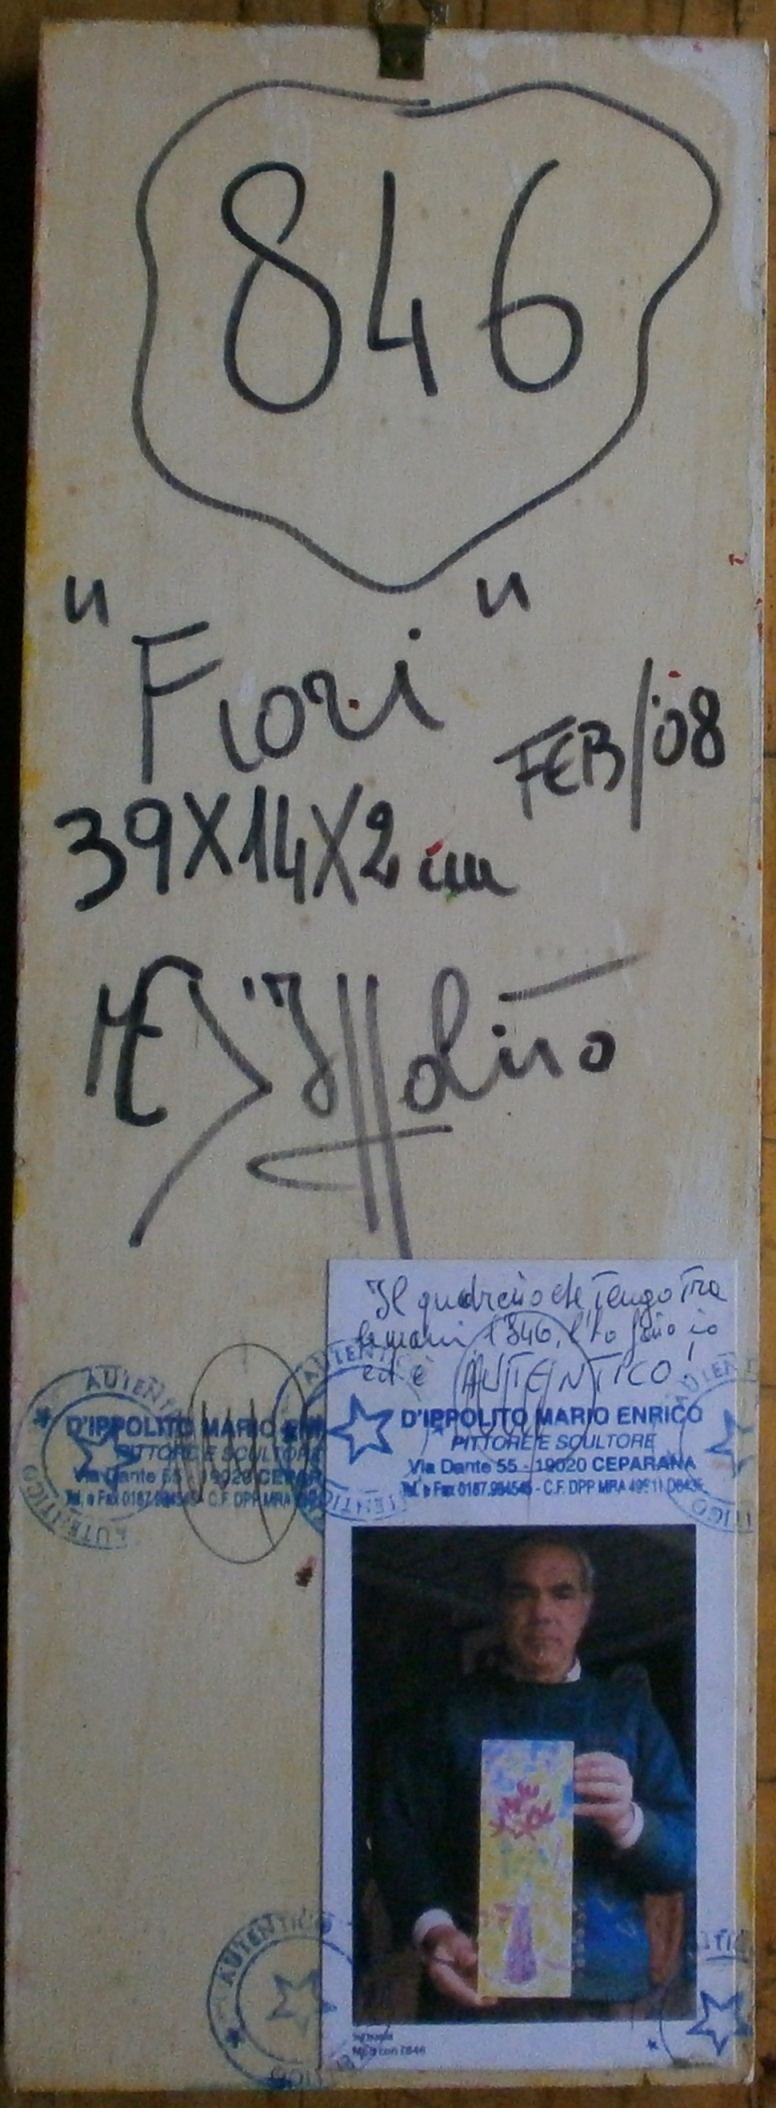 846
"Fiori"
FEB/'08
39X14X2 cm
M E D'Ippolito
Il quadretto che tengo tra
le mani l'846, l'ho fatto io
ed è AUTENTICO!
AUTENTICO
D'IPPOLITO MARIO ENRICO
PITTORE E SCULTORE
Via Dante 55 - 19020 CEPARANA
Tel. e Fax 0187.934545 - C.F. DPP MRA
AUTENTICO
D'IPPOLITO MARIO EN
PITTORE E SCULTORE
Via Dante 55 - 19020 CEPAR
Tel. e Fax 0187.934545 - C.F. DPP MRA
AUTENTICO
AUTENTICO